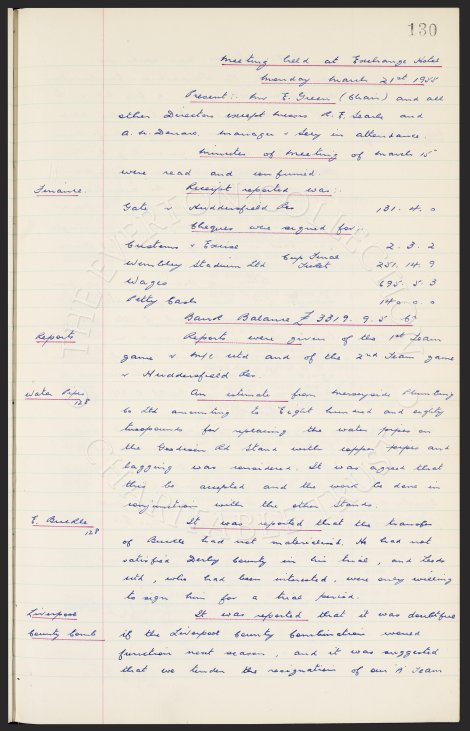 130
Meeting held at Exchange Hotel
Monday March 21st 1955
Present:- Mr E. Green (Chair) and all
other Directors except Messrs R. F. Searle and
A. W. Denaro. Manager & Secy in attendance.
Minutes of Meeting of March 15th
were read and confirmed.
Finance. Receipt reported was:-
Gate v Huddersfield Res 131. 4. 0
Cheques were signed for:-
Customs & Excise 2. 3. 2
Wembley Stadium Ltd Cup Final Ticket 251. 14. 9
Wages 695. 5. 3
Petty Cash 140. 0. 0
Bank Balance £3319. 9. 5
Reports Reports were given of the 1st Team
game v M/c Utd and of the 2nd Team game
v Huddersfield Res.
Water Pipes 128 An estimate from Merseyside Plumbing
Co Ltd amounting to Eight hundred and eighty
two pounds for replacing the water pipes on
the Goodison Rd Stand with copper pipes and
lagging was considered. It was agreed that
this be accepted and the work be done in
conjunction with the other Stands.
E. Buckle 128 It was reported that the transfer
of Buckle had not materialised. He had not
satisfied Derby County in his trial, and Leeds
Utd, who had been interested, were only willing
to sign him for a trial period.
Liverpool County Comb It was reported that it was doubtful
if the Liverpool County Combination would
function next season, and it was suggested
that we tender the resignation of our 'A' Team
THE EVERTON COLLECTION
CHARITABLE TRUST